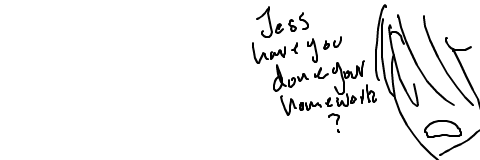 Jess
have you
done your
homework
?